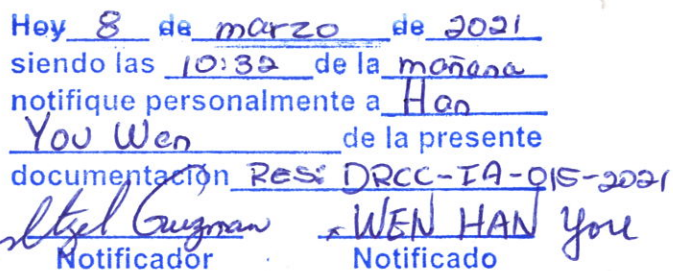 Hoy 8 de marzo de 2021
siendo las 10:32 de la mañana
notifique personalmente a Han
You Wen de la presente
documentación Res: DRCC-IA-015-2021
Itzel Guzman WEN HAN You
Notificador Notificado